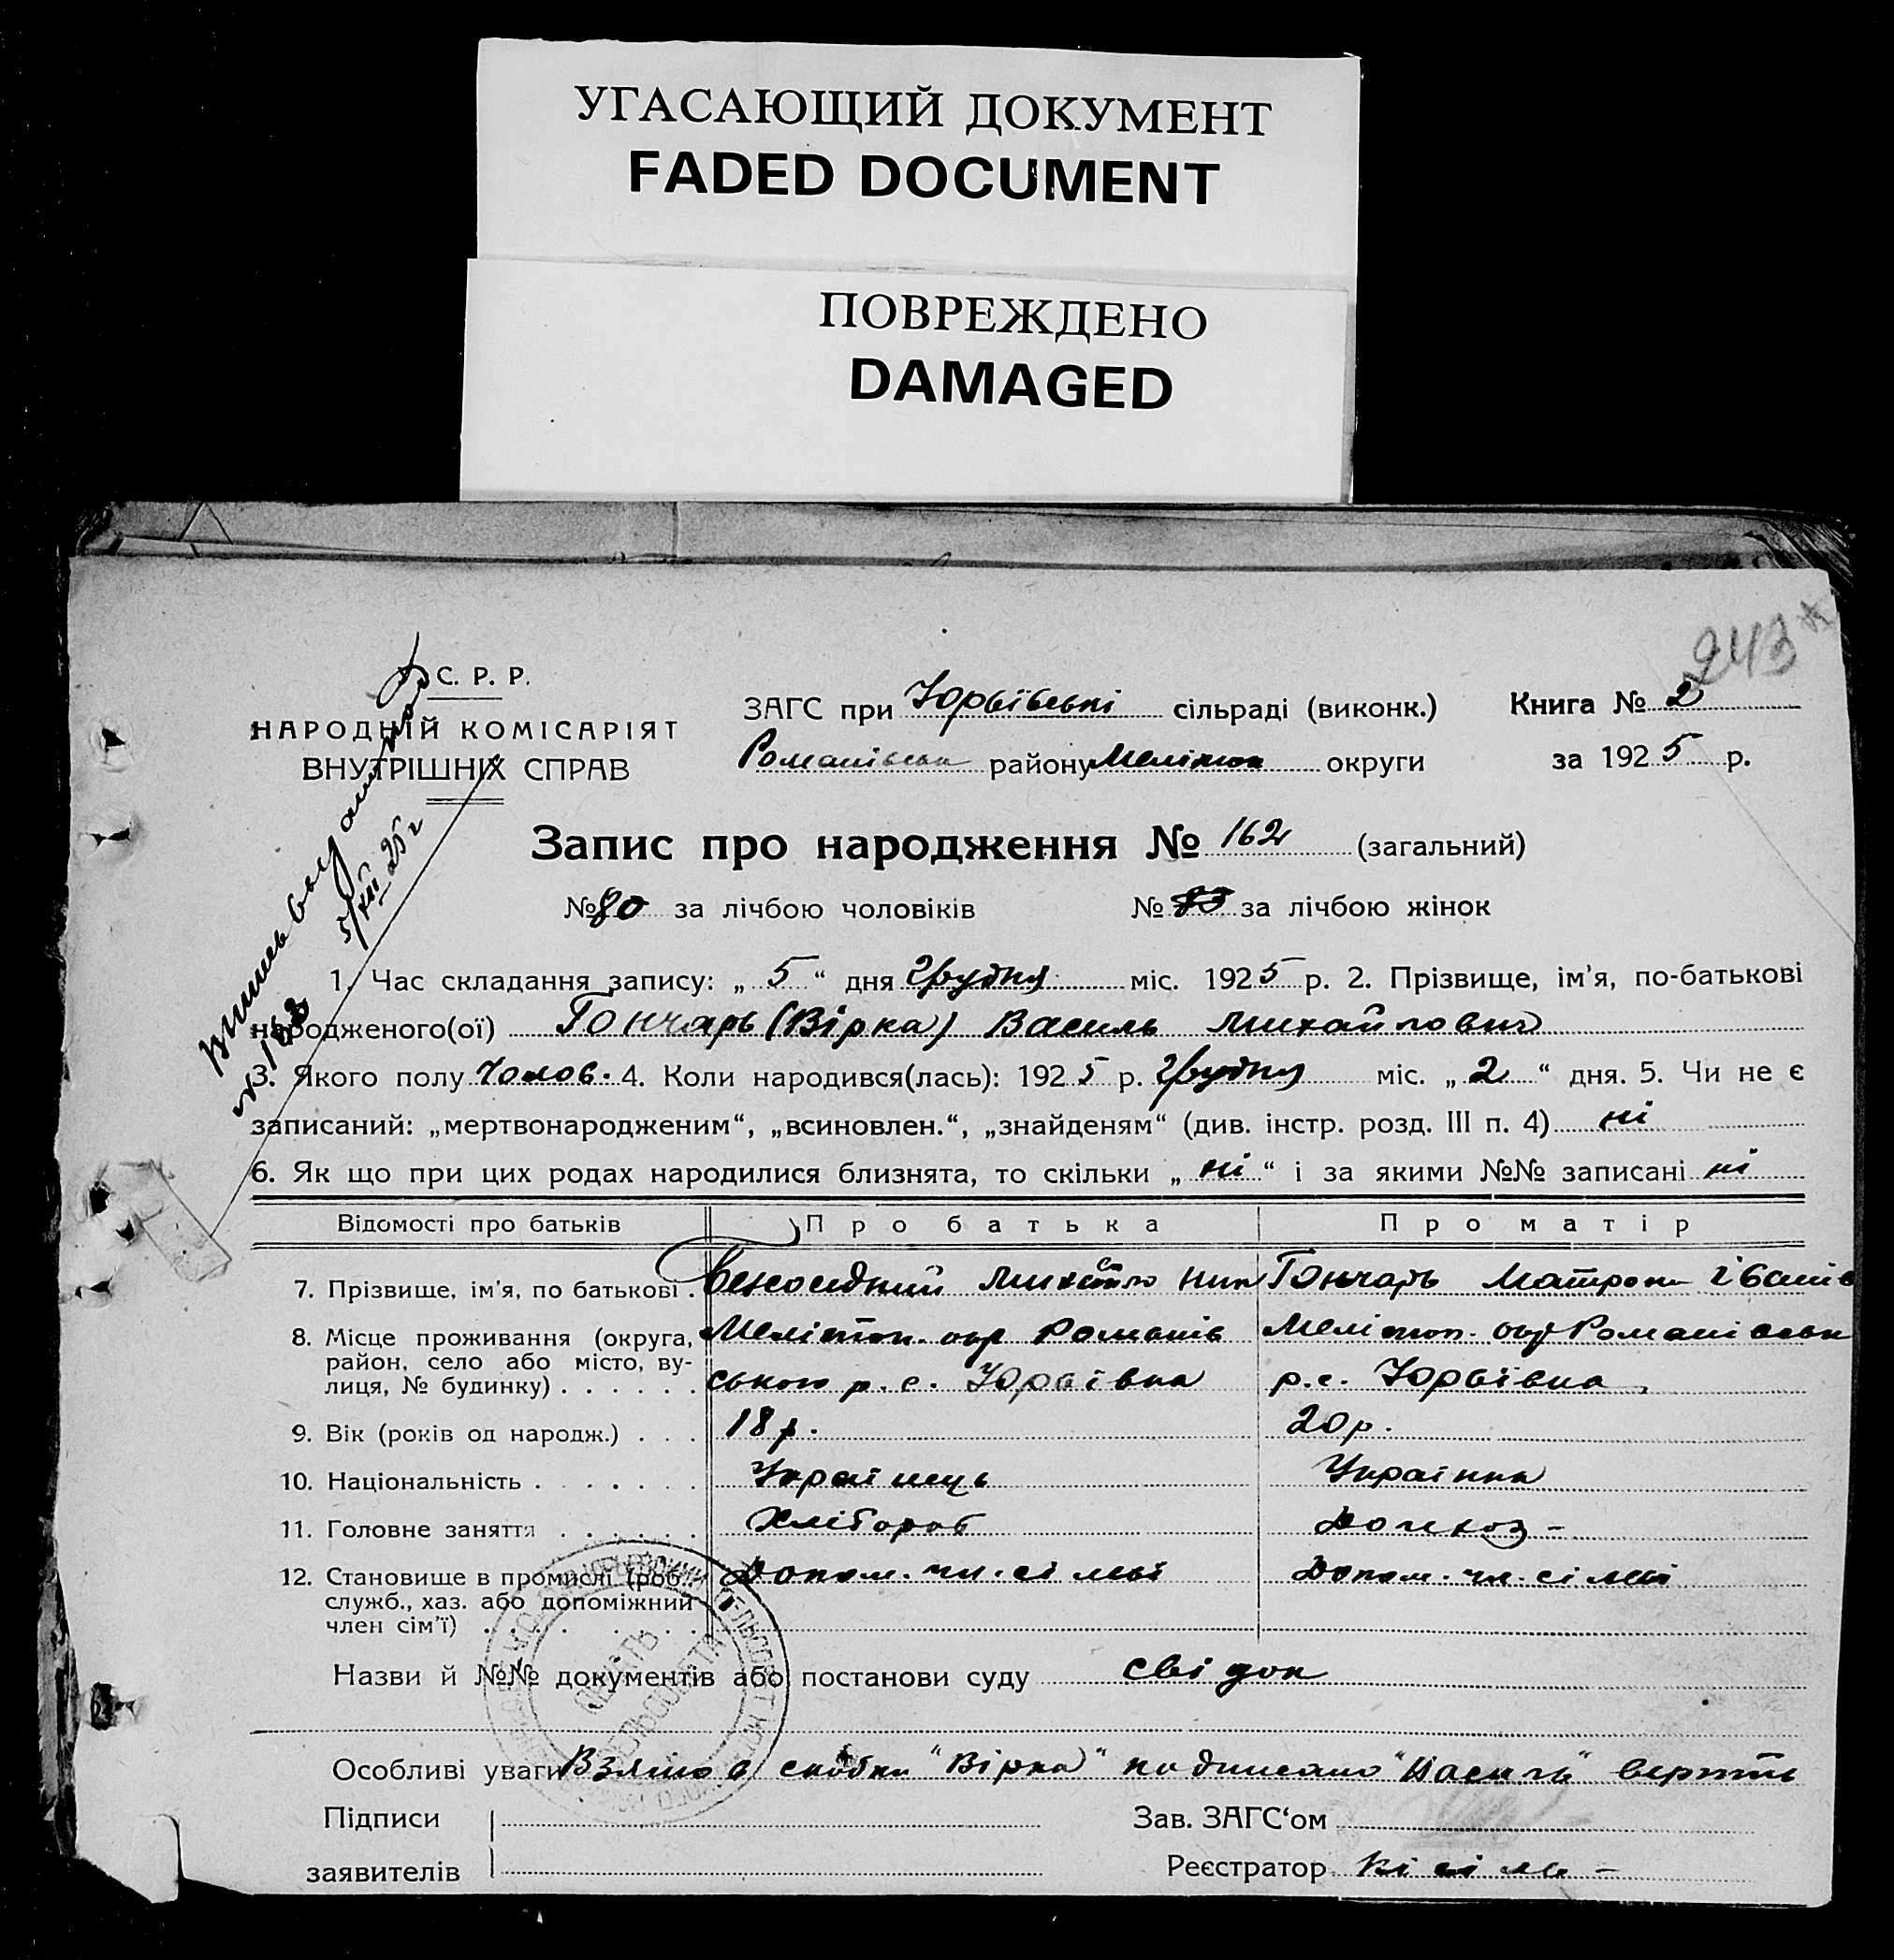 УГАСАЮЩИЙ ДОКУМЕНТ
FADED DOCUMENT
ПОВРЕЖДЕНО
DAMAGED
243
С. Р. Р.
НАРОДНІЙ КОМІСАРІЯТ
ВНУТРІШНІХ СПРАВ
5/XII 25 г
№ 163
ЗАГС при Юрьївські сільраді (виконк.) Книга № 2
Романівськ району Меліton округи за 1925 р.
Запис про народження № 162 (загальний)
№ 80 за лічбою чоловіків № за лічбою жінок
1. Час складання запису: „ 5 “ дня Грудня міс. 1925 р. 2. Прізвище, ім'я, по-батькові
народженого(ої) Гончарь (Вірка) Василь Михайлович
3. Якого полу Чолов. 4. Коли народився(лась): 1925 р. Грудня міс. „ 2 “ дня. 5. Чи не є
записаний: „мертвонародженим“, „всиновлен.“, „знайденям“ (див. інстр. розд. III п. 4) ні
6. Як що при цих родах народилися близнята, то скільки „ ні “ і за якими №№ записані ні
Відомості про батьків Про батька Про матір
7. Прізвище, ім'я, по батькові . Гончарь Матрона Іванів
8. Місце проживання (округа, Мелітоп. окр Романів Мелітоп. окр Романівськ
район, село або місто, ву-
лиця, № будинку) . . . . . . ського р. с. Юрьївка р. с. Юрьївка
9. Вік (років од народж.) . . . 18 р. 20 р.
10. Національність . . . . . . . Українець Українка
11. Головне заняття . . . . . . Хлібороб
12. Становище в промислі (роб., Допом. чл. сімьї Допом. чл. сімьї
служб., хаз. або допоміжний
член сім'ї) . . . . . . . .
Назви й №№ документів або постанови суду свідок
Особливі уваги Взято в скобки "Вірка" надписано вірити
Підписи Зав. ЗАГС‘ом
заявителів Реєстратор